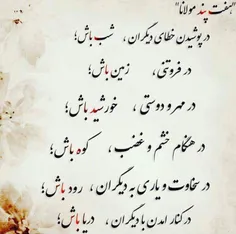 "هفت پند مولانا"
در پوشیدن خطای دیگران ، شب باش؛
در فروتنی ، زمین باش؛
در مهر و دوستی ، خورشید باش؛
در هنگام خشم و غضب ، کوه باش؛
در سخاوت و یاری به دیگران ، رود باش؛
در کنار آمدن با دیگران ، دریا باش؛